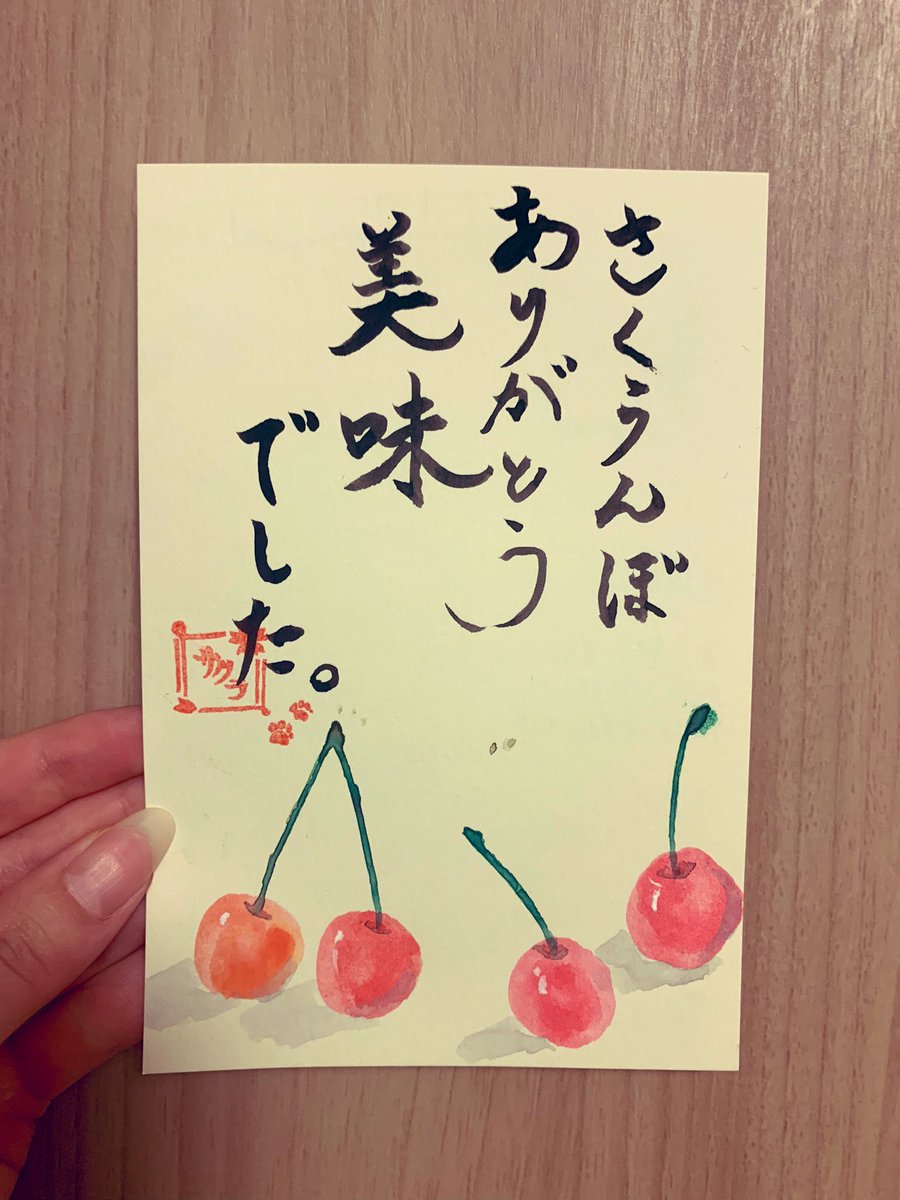 さくらんぼ
ありがとう
美味
でした。